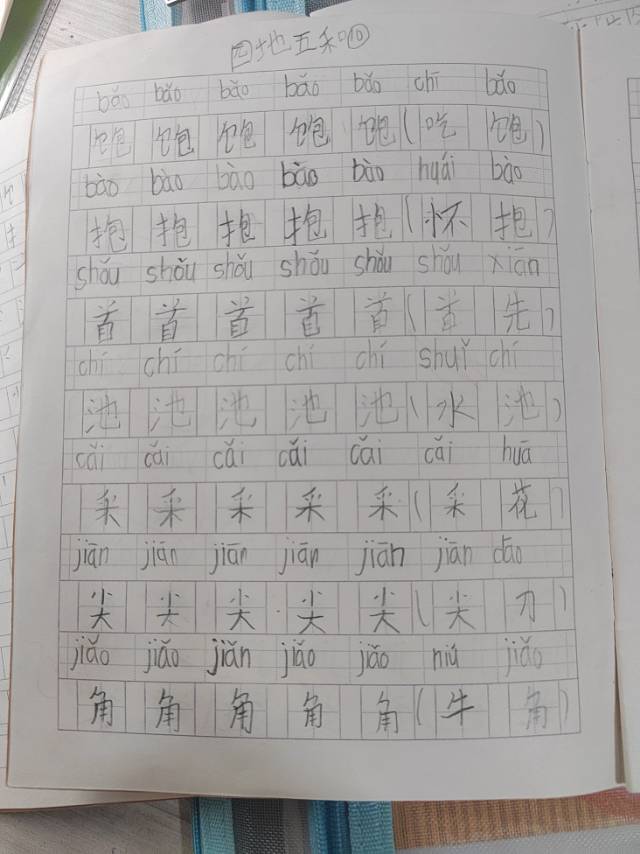 四地五和⑩
bǎo bǎo bǎo bǎo bǎo chī bǎo
饱 饱 饱 饱 饱 ( 吃 饱 )
bào bào bào bào bào huái bào
抱 抱 抱 抱 抱 ( 怀 抱 )
shǒu shǒu shǒu shǒu shǒu shǒu xiān
首 首 首 首 首 ( 首 先 )
chí chí chí chí chí shuǐ chí
池 池 池 池 池 ( 水 池 )
cǎi cǎi cǎi cǎi cǎi cǎi huā
采 采 采 采 采 ( 采 花 )
jiān jiān jiān jiān jiān jiān dāo
尖 尖 尖 尖 尖 ( 尖 刀 )
jiǎo jiǎo jiǎn jiǎo jiǎo niú jiǎo
角 角 角 角 角 ( 牛 角 )